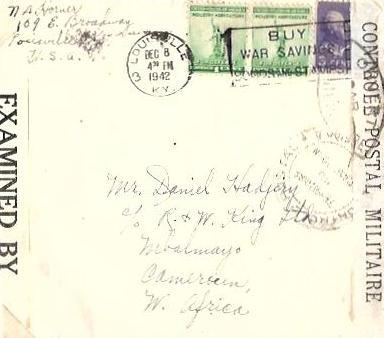 N.A. Horner
109 E. Broadway
Louisville
U.S.A.
LOUISVILLE
DEC 8
4 30 PM
1942
KY.
INDUSTRY AGRICULTURE
INDUSTRY AGRICULTURE
BUY
WAR SAVINGS
BONDS AND STAMPS
EXAMINED BY
CONTROLE POSTAL MILITAIRE
Mr. Daniel Hadjery
c/o R. & W. King Ltd
Mbalmayo
Cameroun,
W. Africa